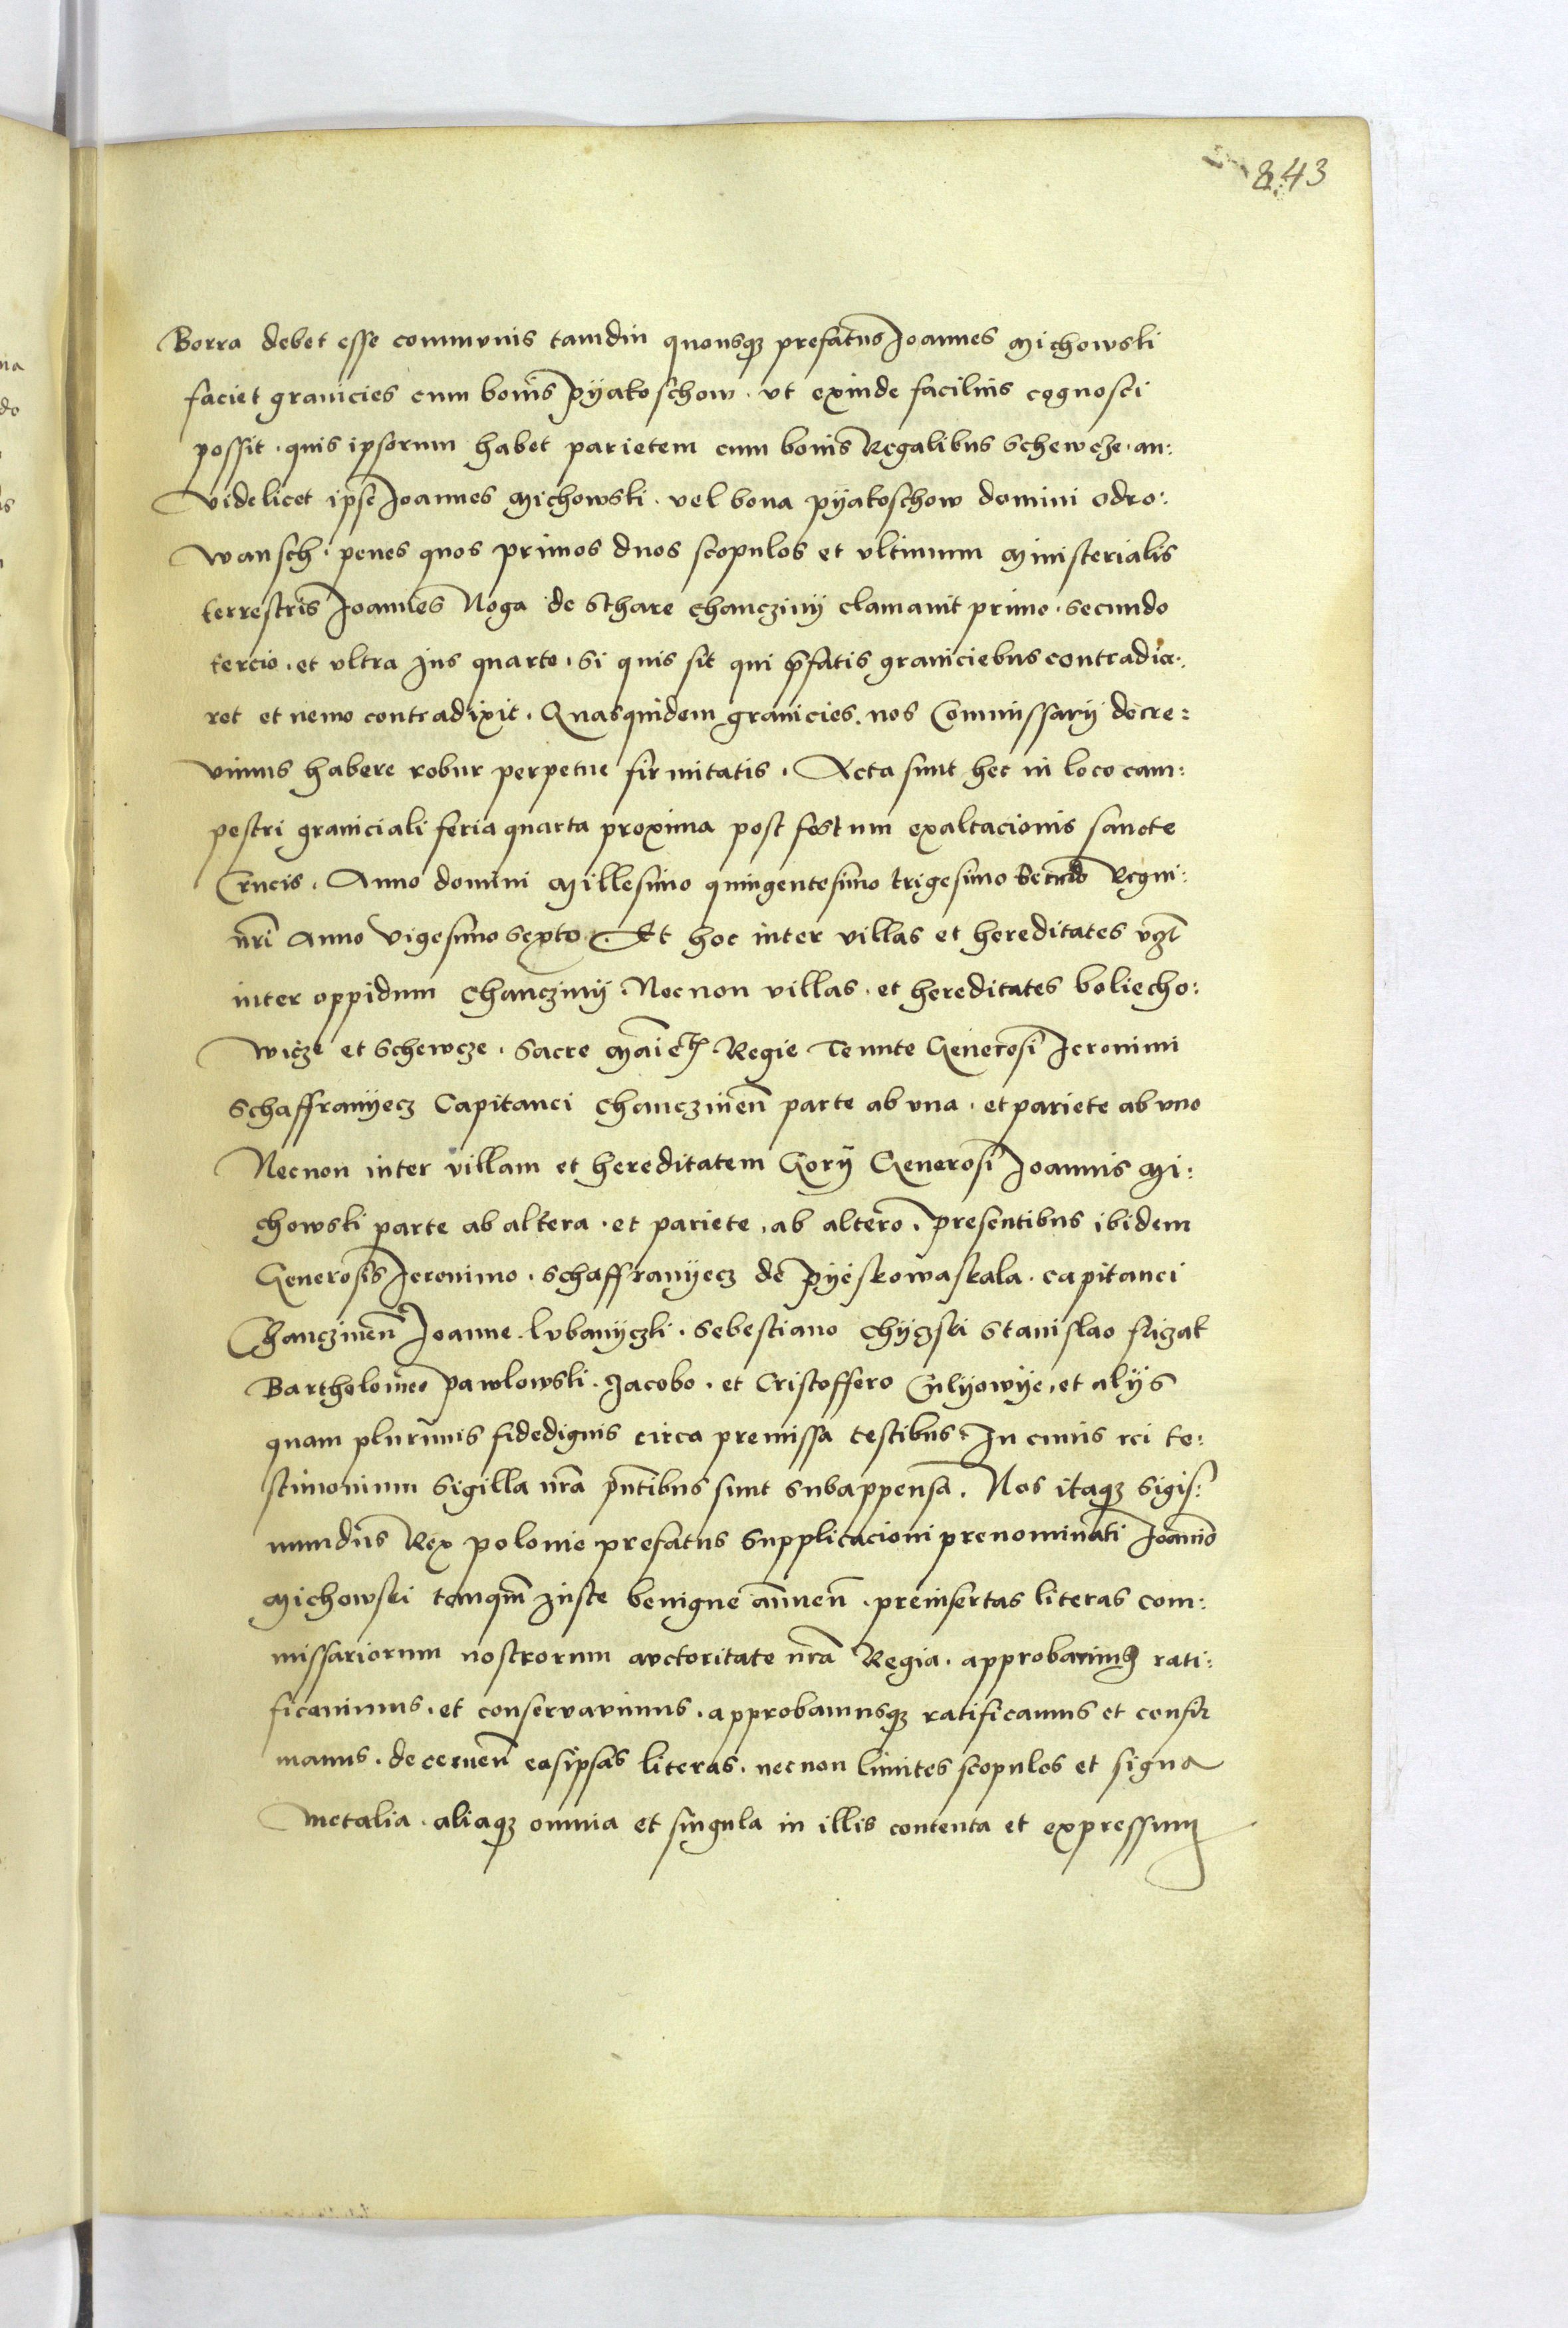 843
Borra debet esse communis tamdiu quousq prefatus Joannes Michowski
faciet granicies cum bonis pyatoschow . vt exinde facilius cognosci
possit . quis ipsorum habet parietem cum bonis Regalibus Schewcze . an:
videlicet ipse Joannes Michowski . vel bona pyatoschow domini odro:
wansch . penes quos primos duos scopulos et vltimum Ministerialis
terrestris Joannes Noga de Sthare Chancziny clamauit primo . secundo
tercio . et vltra jus quarto . si quis sit qui pfatis graniciebus contradice:
ret et nemo contradixit . Quasquidem granicies . nos Commissarij decre:
uimus habere robur perpetue firmitatis . Acta sunt hec in loco cam:
pestri graniciali feria quarta proxima post festum exaltacionis sancte
Crucis . Anno domini Millesimo quingentesimo trigesimo secundo Regni:
nri Anno vigesimo sexto . Et hoc inter villas et hereditates vzl
inter oppidum Chancziny . Necnon villas . et hereditates boliecho:
wicze et Schewcze . Sacre Maietis Regie Tenute Generosi Jeronimi
Schaffranyecz Capitanei Chanczinen parte ab vna . et pariete ab vno
Necnon inter villam et hereditatem Gory Generosi Joannis Mi:
chowski parte ab altera . et pariete . ab altero . presentibus ibidem
Generosis Jeronimo . Schaffranyecz de pyeskowaskala . capitanei
Chanczinen Joanne . lubanyczki . Sebestiano Chyczski Stanislao frizal
Bartholomeo pawlowski . Jacobo . et Cristoffero . et alijs
quam plurimis fidedignis circa premissa testibus . In cuius rei te:
stimonium Sigilla nra pntibus sunt subappensa . Nos itaq Sigis:
mundus Rex polonie prefatus Supplicacioni prenominati Joannis
Michowski tanqm juste benigne annuen . preinsertas literas com:
missariorum nostrorum auctoritate nra Regia . approbauimus rati:
ficauimus . et conservavimus . approbamusq ratificamus et confir
mamus . decernen easipsas literas . necnon limites scopulos et signa
metalia . aliaq omnia et singula in illis contenta et expressum